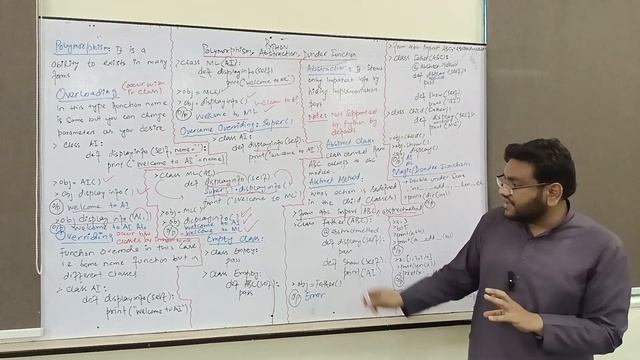 PYTHON
Polymorphism, Abstraction, Dunder Function
Polymorphism: It is a
ability to exists in many
forms
Overloading (occur with
in class)
In this type function name
is same but you can change
parameters as you desire
> class AI:
def displayinfo(self, name=""):
print("Welcome to AI"+name)
> obj = AI()
> obj.displayinfo()
o/p welcome to AI
> obj.display info(AI)
Overriding occur b/w
classes by
function override in this case
i.e same name function but in
different classes
> class AI:
def displayinfo(self):
print("Welcome to AI")
> class ML(AI):
def displayinfo(self):
print("Welcome to ML")
> obj = ML()
> obj.displayinfo()
o/p Welcome to ML
Overcome Overriding: Super()
> class AI:
def displayinfo(self):
print("Welcome to AI")
> class ML(AI):
def displayinfo(self):
super().displayinfo()
print("Welcome to ML")
> obj = ML()
> obj.displayinfo()
o/p Welcome to AI
Welcome to ML
Empty Class:
> Class Empty:
pass
> Class Empty:
def ABC(self):
pass
Abstraction: It
only important info by
hiding implementation
part
Note: Not supported
by Python by
default
Abstract Class
Class derived from
ABC belongs to abc
module.
Abstract Method:
whose action is redefined
in the child classes
> from abc import ABC, abstractmethod
> class Father(ABC):
@ abstractmethod
def display(self):
pass
def show(self):
print("AI")
> obj = Father()
o/p Error
> from abc import ABC, abstractmethod
> class Father(ABC):
@ abstract Method
def display(self):
pass
def show(self):
print("AI")
class child(Father):
def display(self):
print("ML")
> obj.show()
> obj.display()
o/p AI
Magic/Dunder Function: